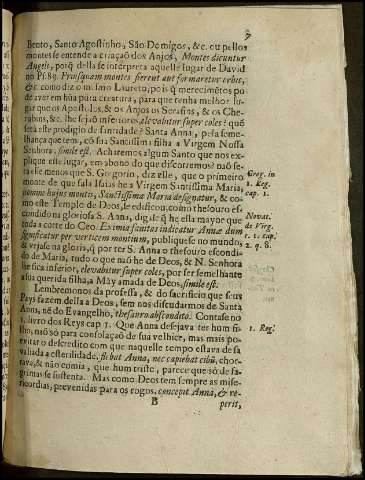 7
Bento, Santo Agostinho, São Domigos, &c. eu pellos
montes se entende a criaçaõ dos Anjos, Montes dicuntur
Angeli, porq̃ desta se interpreta aquelle lugar de David
no Ps. 89. Priusquam montes fierent aut formaretur orbis,
&c. como diz o mesmo Laureto; pois q̃ merecimẽtos po-
de aver em hũa pura creatura, para que tenha melhor lu-
gar que os Apostolos, & os Anjos os Serafins, & os Che-
rubins, &c. lhe sejaõ inferiores, elevabitur super coles? que
será este prodigio de santidade? Santa Anna, pela seme-
lhança que tem, cõ sua Santissima filha a Virgem Nossa
Senhora, simile est. Acharemos algum Santo que nos ex-
plique este lugar, em abono do que discorremos? naõ se-
ja elle menos que S. Gregorio, diz elle, que o primeiro
monte de que fala Isaias he a Virgem Santissima Maria,
nomine hujus montis, Sanctissima Maria designatur, & co-
mo este Templo de Deos, se edificou como thesouro es-
condido na gloriosa S. Anna, digase q̃ he ella mayor que
toda a corte do Ceo. Eximia sanitas indicatur Annæ dum
significatur per verticem montium, publiquese no mundo
& vejase na gloria, q̃ por ter S. Anna o thesouro escondi-
do de Maria, tudo o que naõ he de Deos, & N. Senhora
lhe fica inferior, elevabitur super coles, por ser semelhante
a sua querida filha, a Mãy amada de Deos, simile est.
Lembremonos da professa, & do sacrificio que seus
Pays fazem della a Deos, sem nos discudarmos de Santa
Anna, nẽ do Evangelho, thesauro abscondito. Contase no
1. livro dos Reys cap. 1. Que Anna desejava ter hum fi-
lho, naõ só para consolaçaõ de sua velhice, mas mais po-
evitar o descredito com que naquelle tempo estava desa-
valiada a esterilidade, flebat Anna, nec capiebat cibũ, cho-
rava, & naõ comia, que hum triste, parece que só de la-
grimas se sustenta. Mas como Deos tem sempre as mise-
ricordias, prevenidas para os rogos, concepit Anna, & pe-
B
perit,
Greg. in
1. Reg.
cap. 1.
Novat.
de Virg.
t. 1. cap.
2. q. 8.
1. Reg.